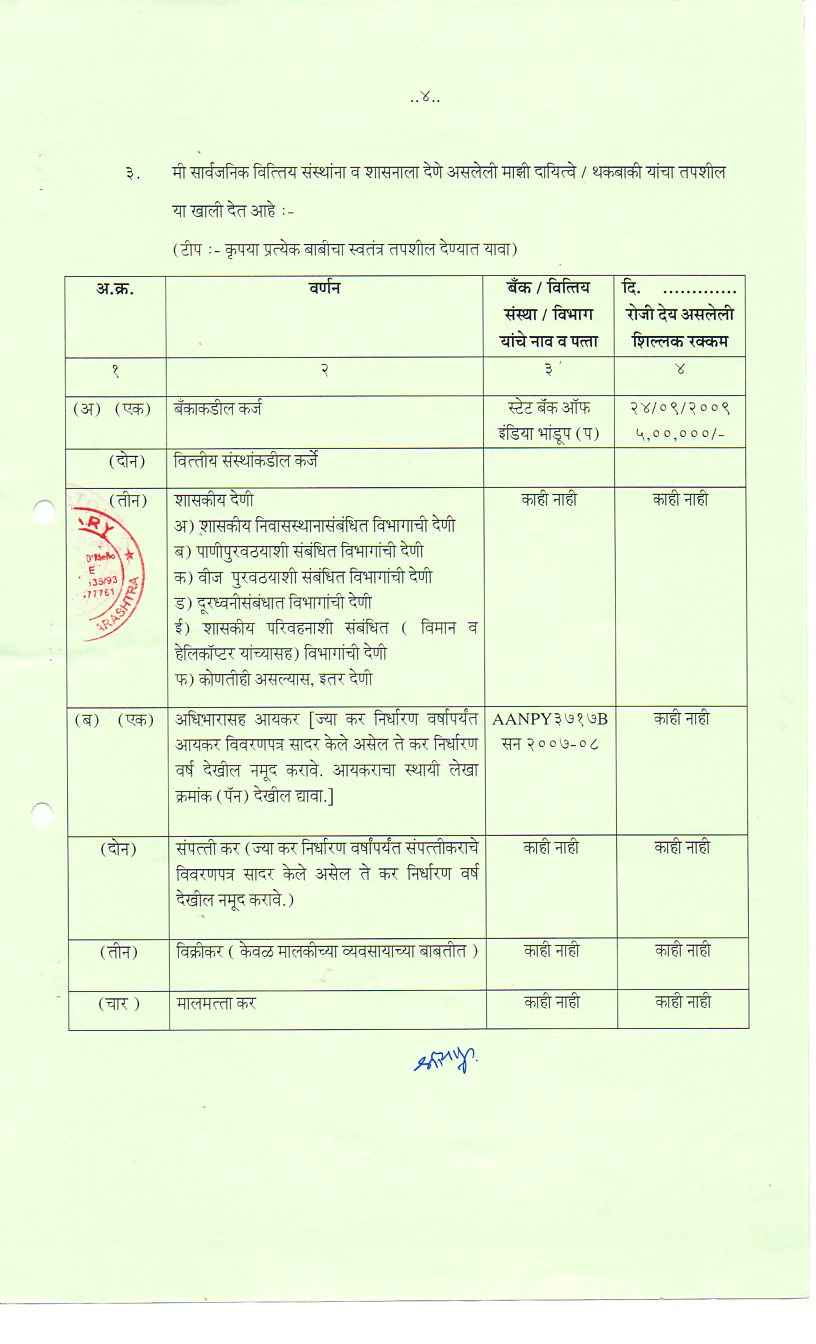 ..४..
३. मी सार्वजनिक वित्तिय संस्थांना व शासनाला देणे असलेली माझी दायित्वे / थकबाकी यांचा तपशील
या खाली देत आहे :-
(टीप :- कृपया प्रत्येक बाबीचा स्वतंत्र तपशील देण्यात यावा)
अ.क्र. वर्णन बँक / वित्तिय दि. .............
संस्था / विभाग रोजी देय असलेली
यांचे नाव व पत्ता शिल्लक रक्कम
१ २ ३ ४
(अ) (एक) बँकाकडील कर्ज स्टेट बॅक ऑफ २४/०९/२००९
इंडिया भांडूप (प) ५,००,०००/-
(दोन) वित्तीय संस्थांकडील कर्जे
(तीन) शासकीय देणी काही नाही काही नाही
अ) शासकीय निवासस्थानासंबंधित विभागाची देणी
ब) पाणीपुरवठयाशी संबंधित विभागांची देणी
क) वीज पुरवठयाशी संबंधित विभागांची देणी
ड) दूरध्वनीसंबंधात विभागांची देणी
ई) शासकीय परिवहनाशी संबंधित ( विमान व
हेलिकॉप्टर यांच्यासह) विभागांची देणी
फ) कोणतीही असल्यास, इतर देणी
ARY
D'Mello
E
35/93
77761
ARASHTRA
(ब) (एक) अधिभारासह आयकर [ज्या कर निर्धारण वर्षापर्यंत AANPY३७१७B काही नाही
आयकर विवरणपत्र सादर केले असेल ते कर निर्धारण सन २००७-०८
वर्ष देखील नमूद करावे. आयकराचा स्थायी लेखा
क्रमांक (पॅन) देखील द्यावा.]
(दोन) संपत्ती कर (ज्या कर निर्धारण वर्षापर्यंत संपत्तीकराचे काही नाही काही नाही
विवरणपत्र सादर केले असेल ते कर निर्धारण वर्ष
देखील नमूद करावे.)
(तीन) विक्रीकर ( केवळ मालकीच्या व्यवसायाच्या बाबतीत ) काही नाही काही नाही
(चार ) मालमत्ता कर काही नाही काही नाही